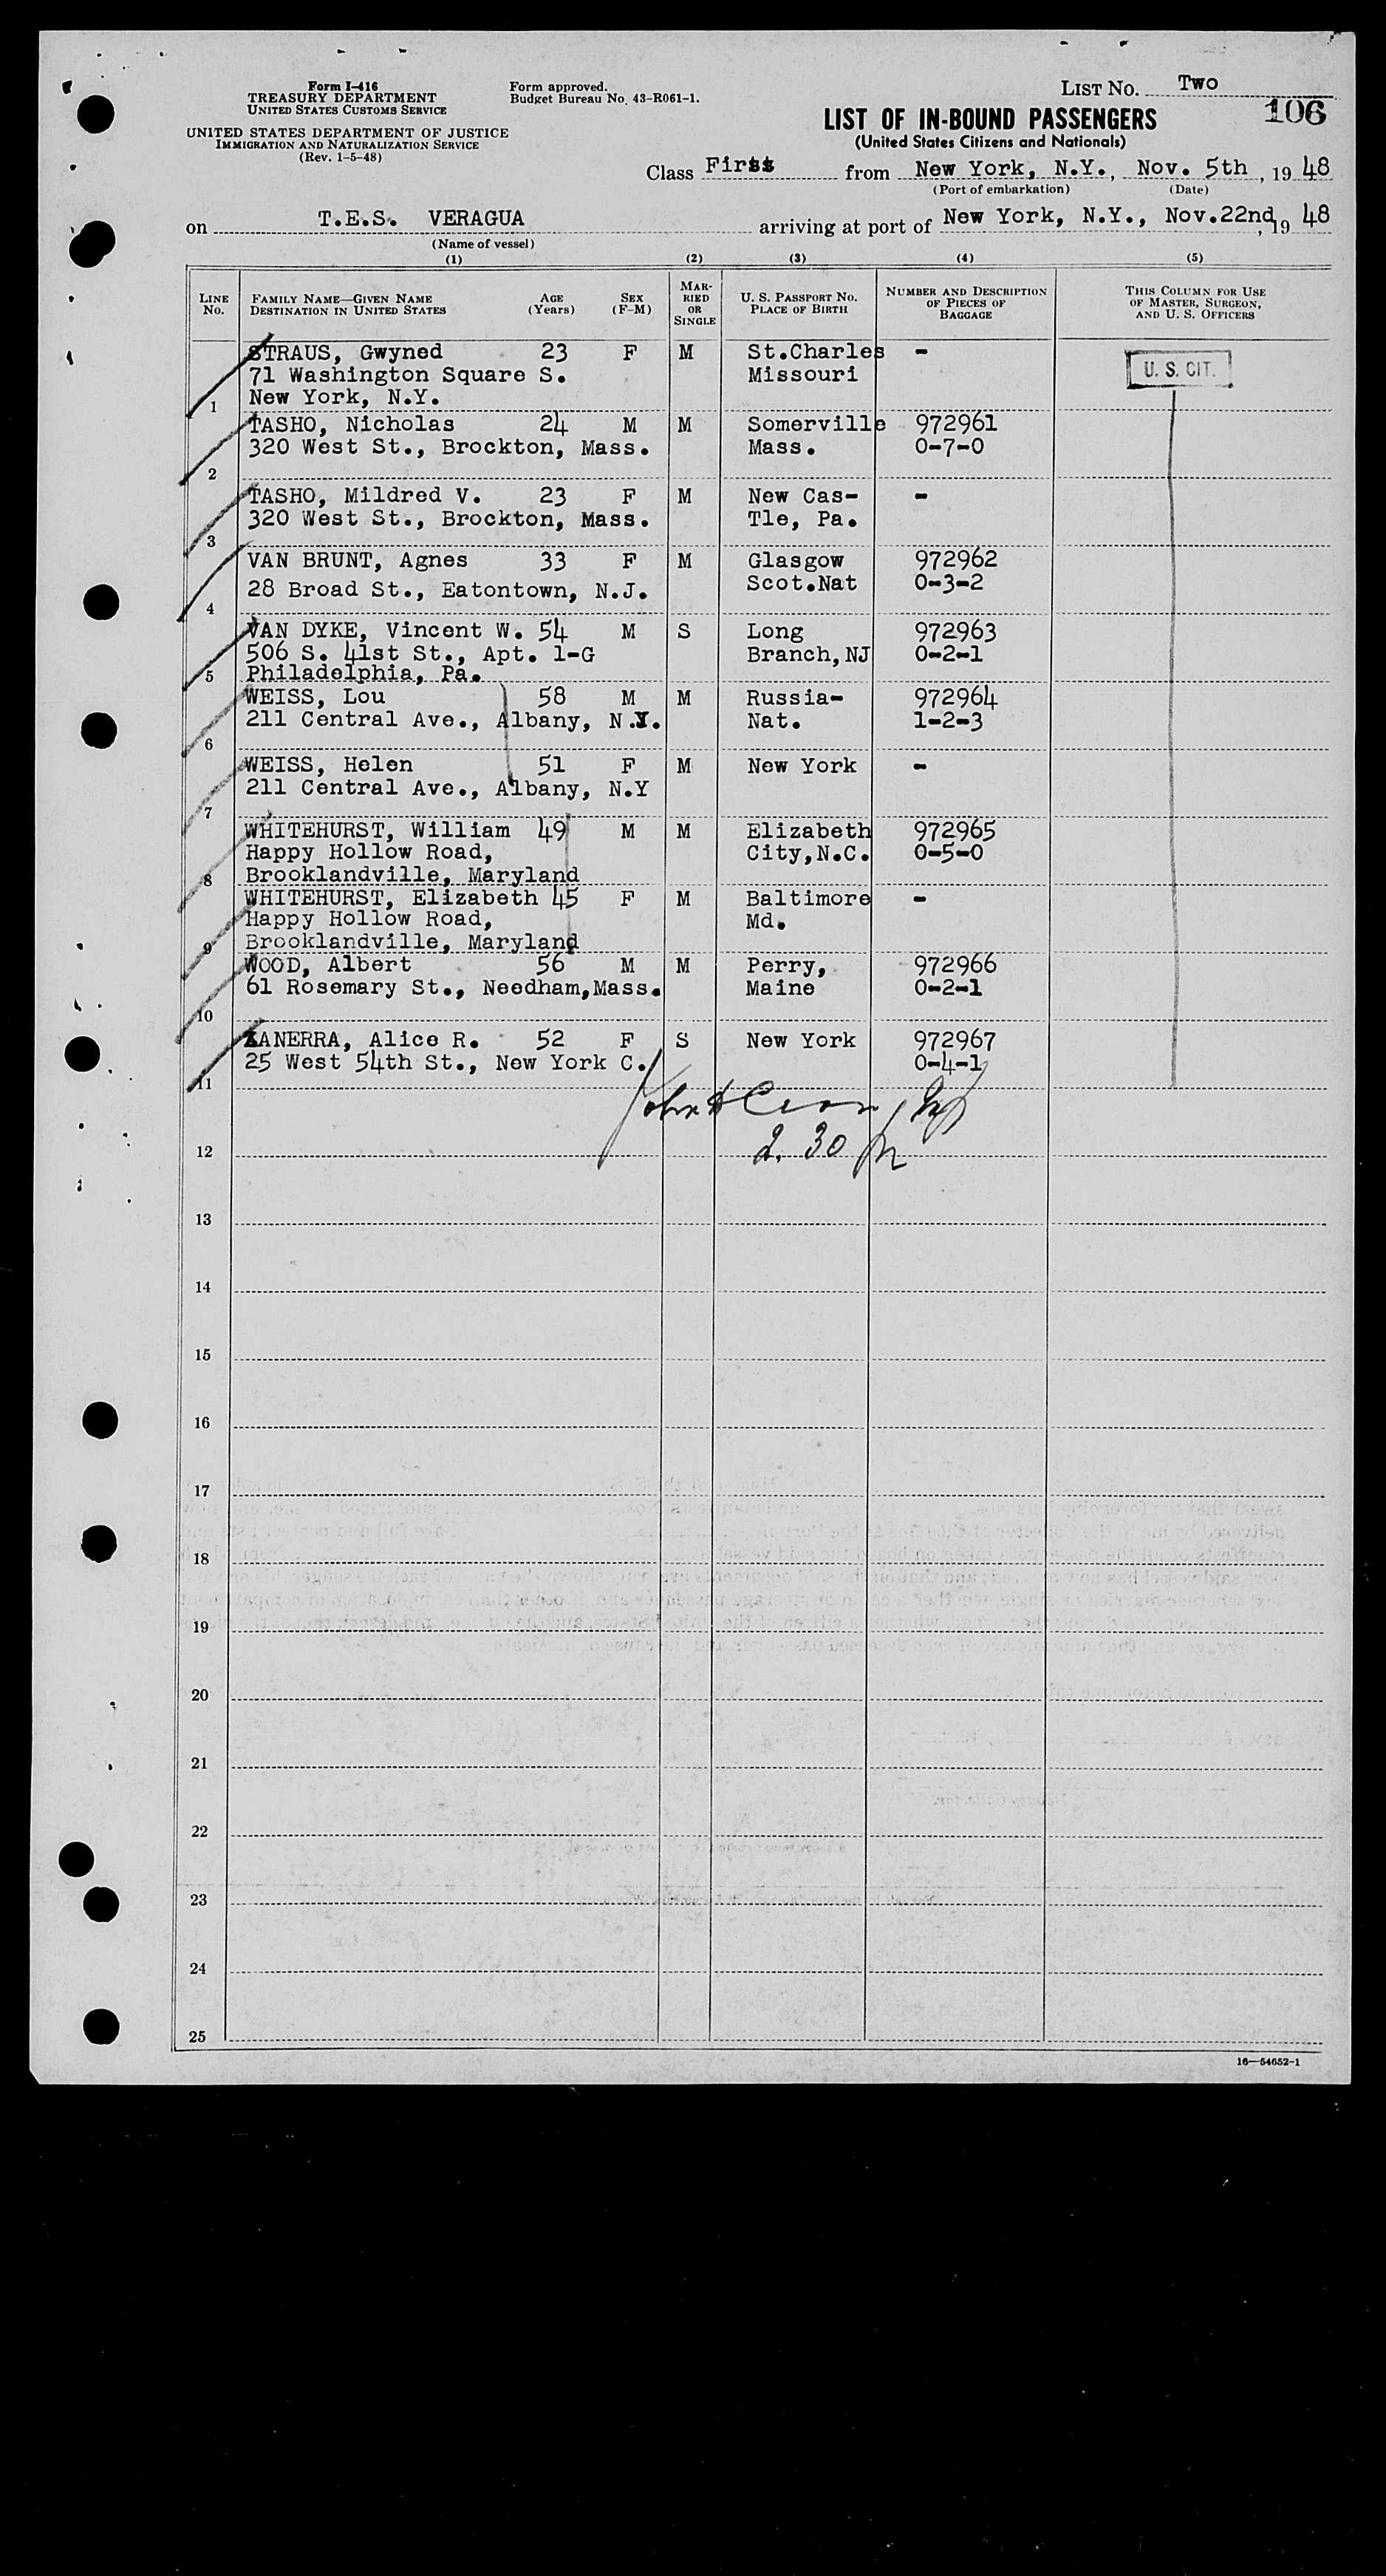 Form I-416
TREASURY DEPARTMENT
UNITED STATES CUSTOMS SERVICE
UNITED STATES DEPARTMENT OF JUSTICE
IMMIGRATION AND NATURALIZATION SERVICE
(Rev. 1-5-48)
Form approved.
Budget Bureau No. 43-R061-1.
LIST No. Two
106
LIST OF IN-BOUND PASSENGERS
(United States Citizens and Nationals)
Class First from New York, N.Y., Nov. 5th, 19 48
(Port of embarkation) (Date)
on T.E.S. VERAGUA arriving at port of New York, N.Y., Nov.22nd, 19 48
(Name of vessel)
(1) (2) (3) (4) (5)
LINE No. FAMILY NAME—GIVEN NAME DESTINATION IN UNITED STATES AGE (Years) SEX (F-M) MARRIED OR SINGLE U. S. PASSPORT No. PLACE OF BIRTH NUMBER AND DESCRIPTION OF PIECES OF BAGGAGE THIS COLUMN FOR USE OF MASTER, SURGEON, AND U. S. OFFICERS
STRAUS, Gwyned 23 F M St.Charles -
71 Washington Square S. Missouri U. S. CIT.
1 New York, N.Y.
TASHO, Nicholas 24 M M Somerville 972961
320 West St., Brockton, Mass. Mass. 0-7-0
2
TASHO, Mildred V. 23 F M New Cas- -
320 West St., Brockton, Mass. Tle, Pa.
3
VAN BRUNT, Agnes 33 F M Glasgow 972962
28 Broad St., Eatontown, N.J. Scot.Nat 0-3-2
4
VAN DYKE, Vincent W. 54 M S Long 972963
506 S. 41st St., Apt. 1-G Branch,NJ 0-2-1
5 Philadelphia, Pa.
WEISS, Lou 58 M M Russia- 972964
211 Central Ave., Albany, N.Y. Nat. 1-2-3
6
WEISS, Helen 51 F M New York -
211 Central Ave., Albany, N.Y
7
WHITEHURST, William 49 M M Elizabeth 972965
Happy Hollow Road, City,N.C. 0-5-0
8 Brooklandville, Maryland
WHITEHURST, Elizabeth 45 F M Baltimore -
Happy Hollow Road, Md.
9 Brooklandville, Maryland
WOOD, Albert 56 M M Perry, 972966
61 Rosemary St., Needham,Mass. Maine 0-2-1
10
ZANERRA, Alice R. 52 F S New York 972967
25 West 54th St., New York C. 0-4-1
11
2.30
12
13
14
15
16
17
18
19
20
21
22
23
24
25
16—54652-1